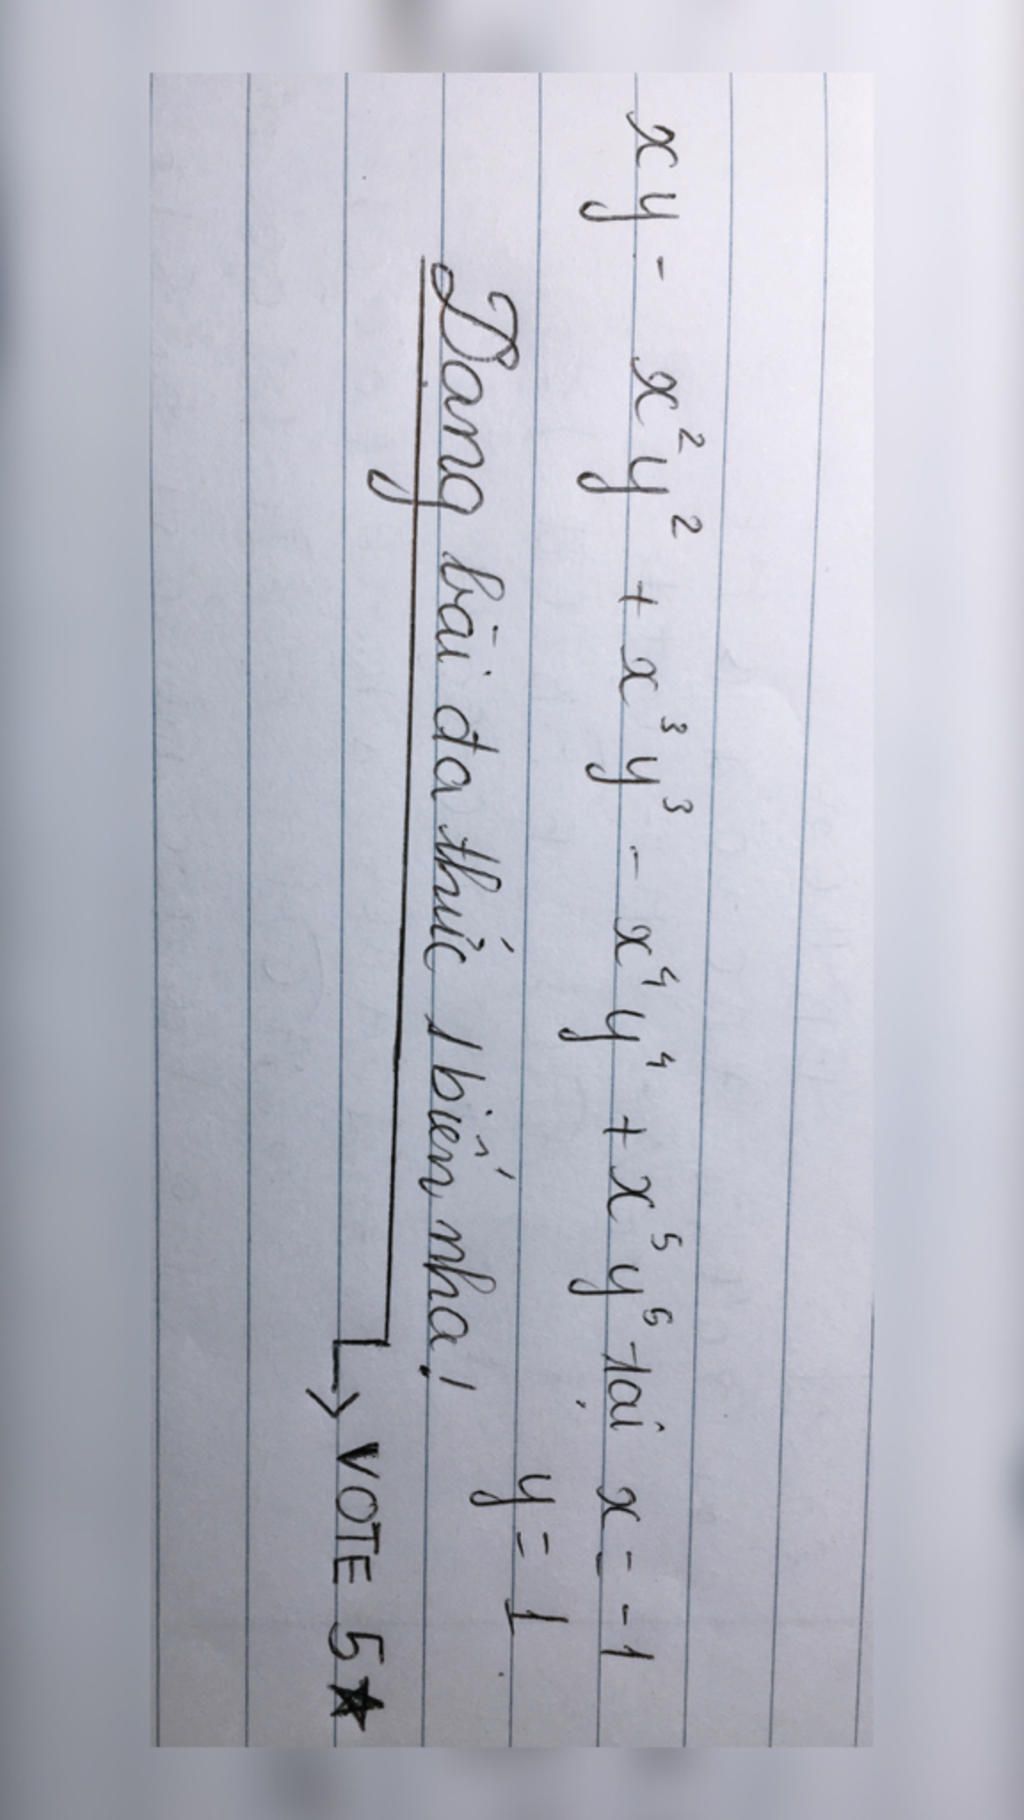 xy - x²y² + x³y³ - x⁴y⁴ + x⁵y⁵ tại x = -1
y = 1
Dạng bài đa thức 1 biến nha!
VOTE 5★